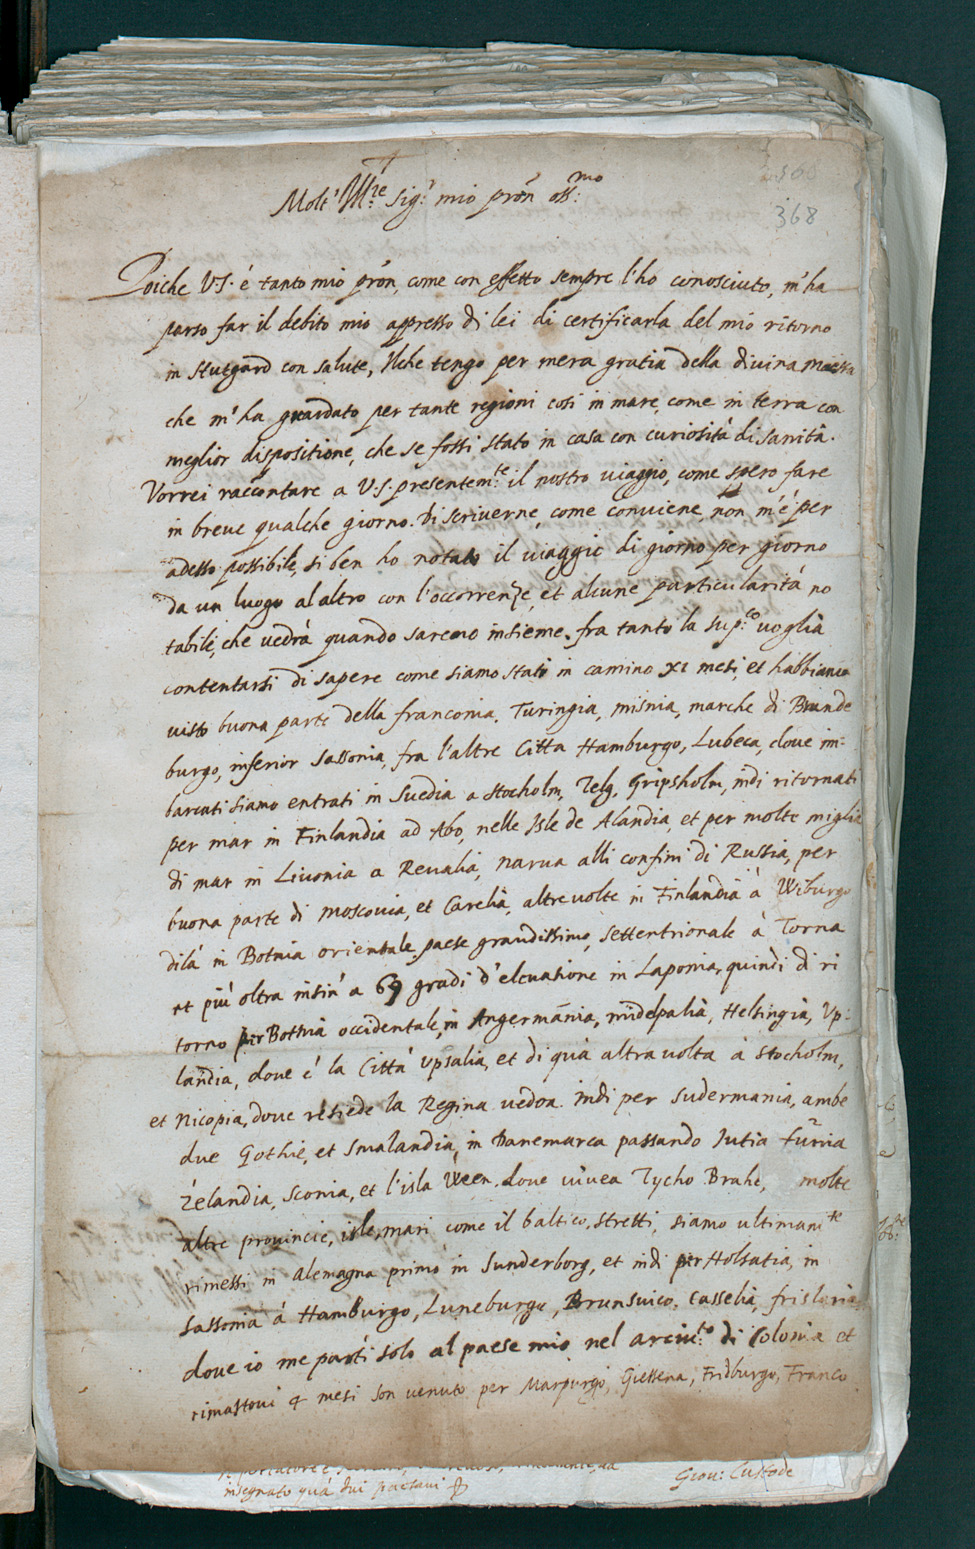 Molt' Ill.re Sig.r mio prōn oss.mo
368
Poiche V.S. é tanto mio prōn, come con effetto sempre l'ho conosciuto, m'ha
parso far il debito mio appresso di lei di certificarla del mio ritorno
in Stutgard con salute, Ilche tengo per mera gratia della divina
che m'ha guardato per tante regioni cosi in mare, come in terra con
meglior dispositione, che se fossi stato in casa con curiosità di sanità.
Vorrei raccontare a V.S. presentem.te il nostro viaggio, come spero fare
in breve qualche giorno. Di scriverne, come conviene, non m'é per
adesso possibile, si ben ho notato il viaggio di giorno per giorno
da un luogo al altro con l'occorrenze, et alcune particularità no
tabili, che vedrà quando saremo insieme. fra tanto la sup.co voglia
contentarsi di sapere come siamo stati in camino XI mesi, et habbiamo
visto buona parte della franconia, Turingia, misnia, marche di Brande
burgo, inferior Sassonia, fra l'altre Citta Hamburgo, Lubeca, dove im-
barcati siamo entrati in Suedia a Stocholm, Telg, Gripsholm, indi ritornati
per mar in Finlandia ad Abo, nelle Isle de Alandia, et per molte miglia
di mar in Livonia a Revalia, Narva alli confini di Russia, per
buona parte di moscovia, et Carelia, altre volte in Finlandia à Wiburgo
dilà in Botnia orientale paese grandissimo, settentrionale à Torna
et più oltra insin' a 69 gradi d'elevatione in Laponia, quindi di ri
torno per Bothnia occidentale, in Angermānia, midelpalia, Helsingia, Up-
landia, dove é la Città Upsalia, et di quà altra volta à Stocholm,
et Nicopia, dove résiede la Regina vedoa. Indi per Sudermania, ambe
due Gothie, et Smalandia, in Danemarca passando Jutia funia
Zelandia, Sconia, et l'isla Ween. dove vivea Tycho Brahe, molte
altre provincie, isle, mari come il baltico, stretti, siamo ultimam.te
rimessi in Alemagna primo in Sunderborg, et indi per Holsatia, in
Sassonia à Hamburgo, Luneburgu, Brunsvico, Casselia, frislaria,
dove io me parti solo al paese mio nel arciu.to di Colonia et
rimastovi 4 mesi son venuto per Marpurgo, Giessena, Fridburgo, Franco
insegnato quà dui Giov: Custode